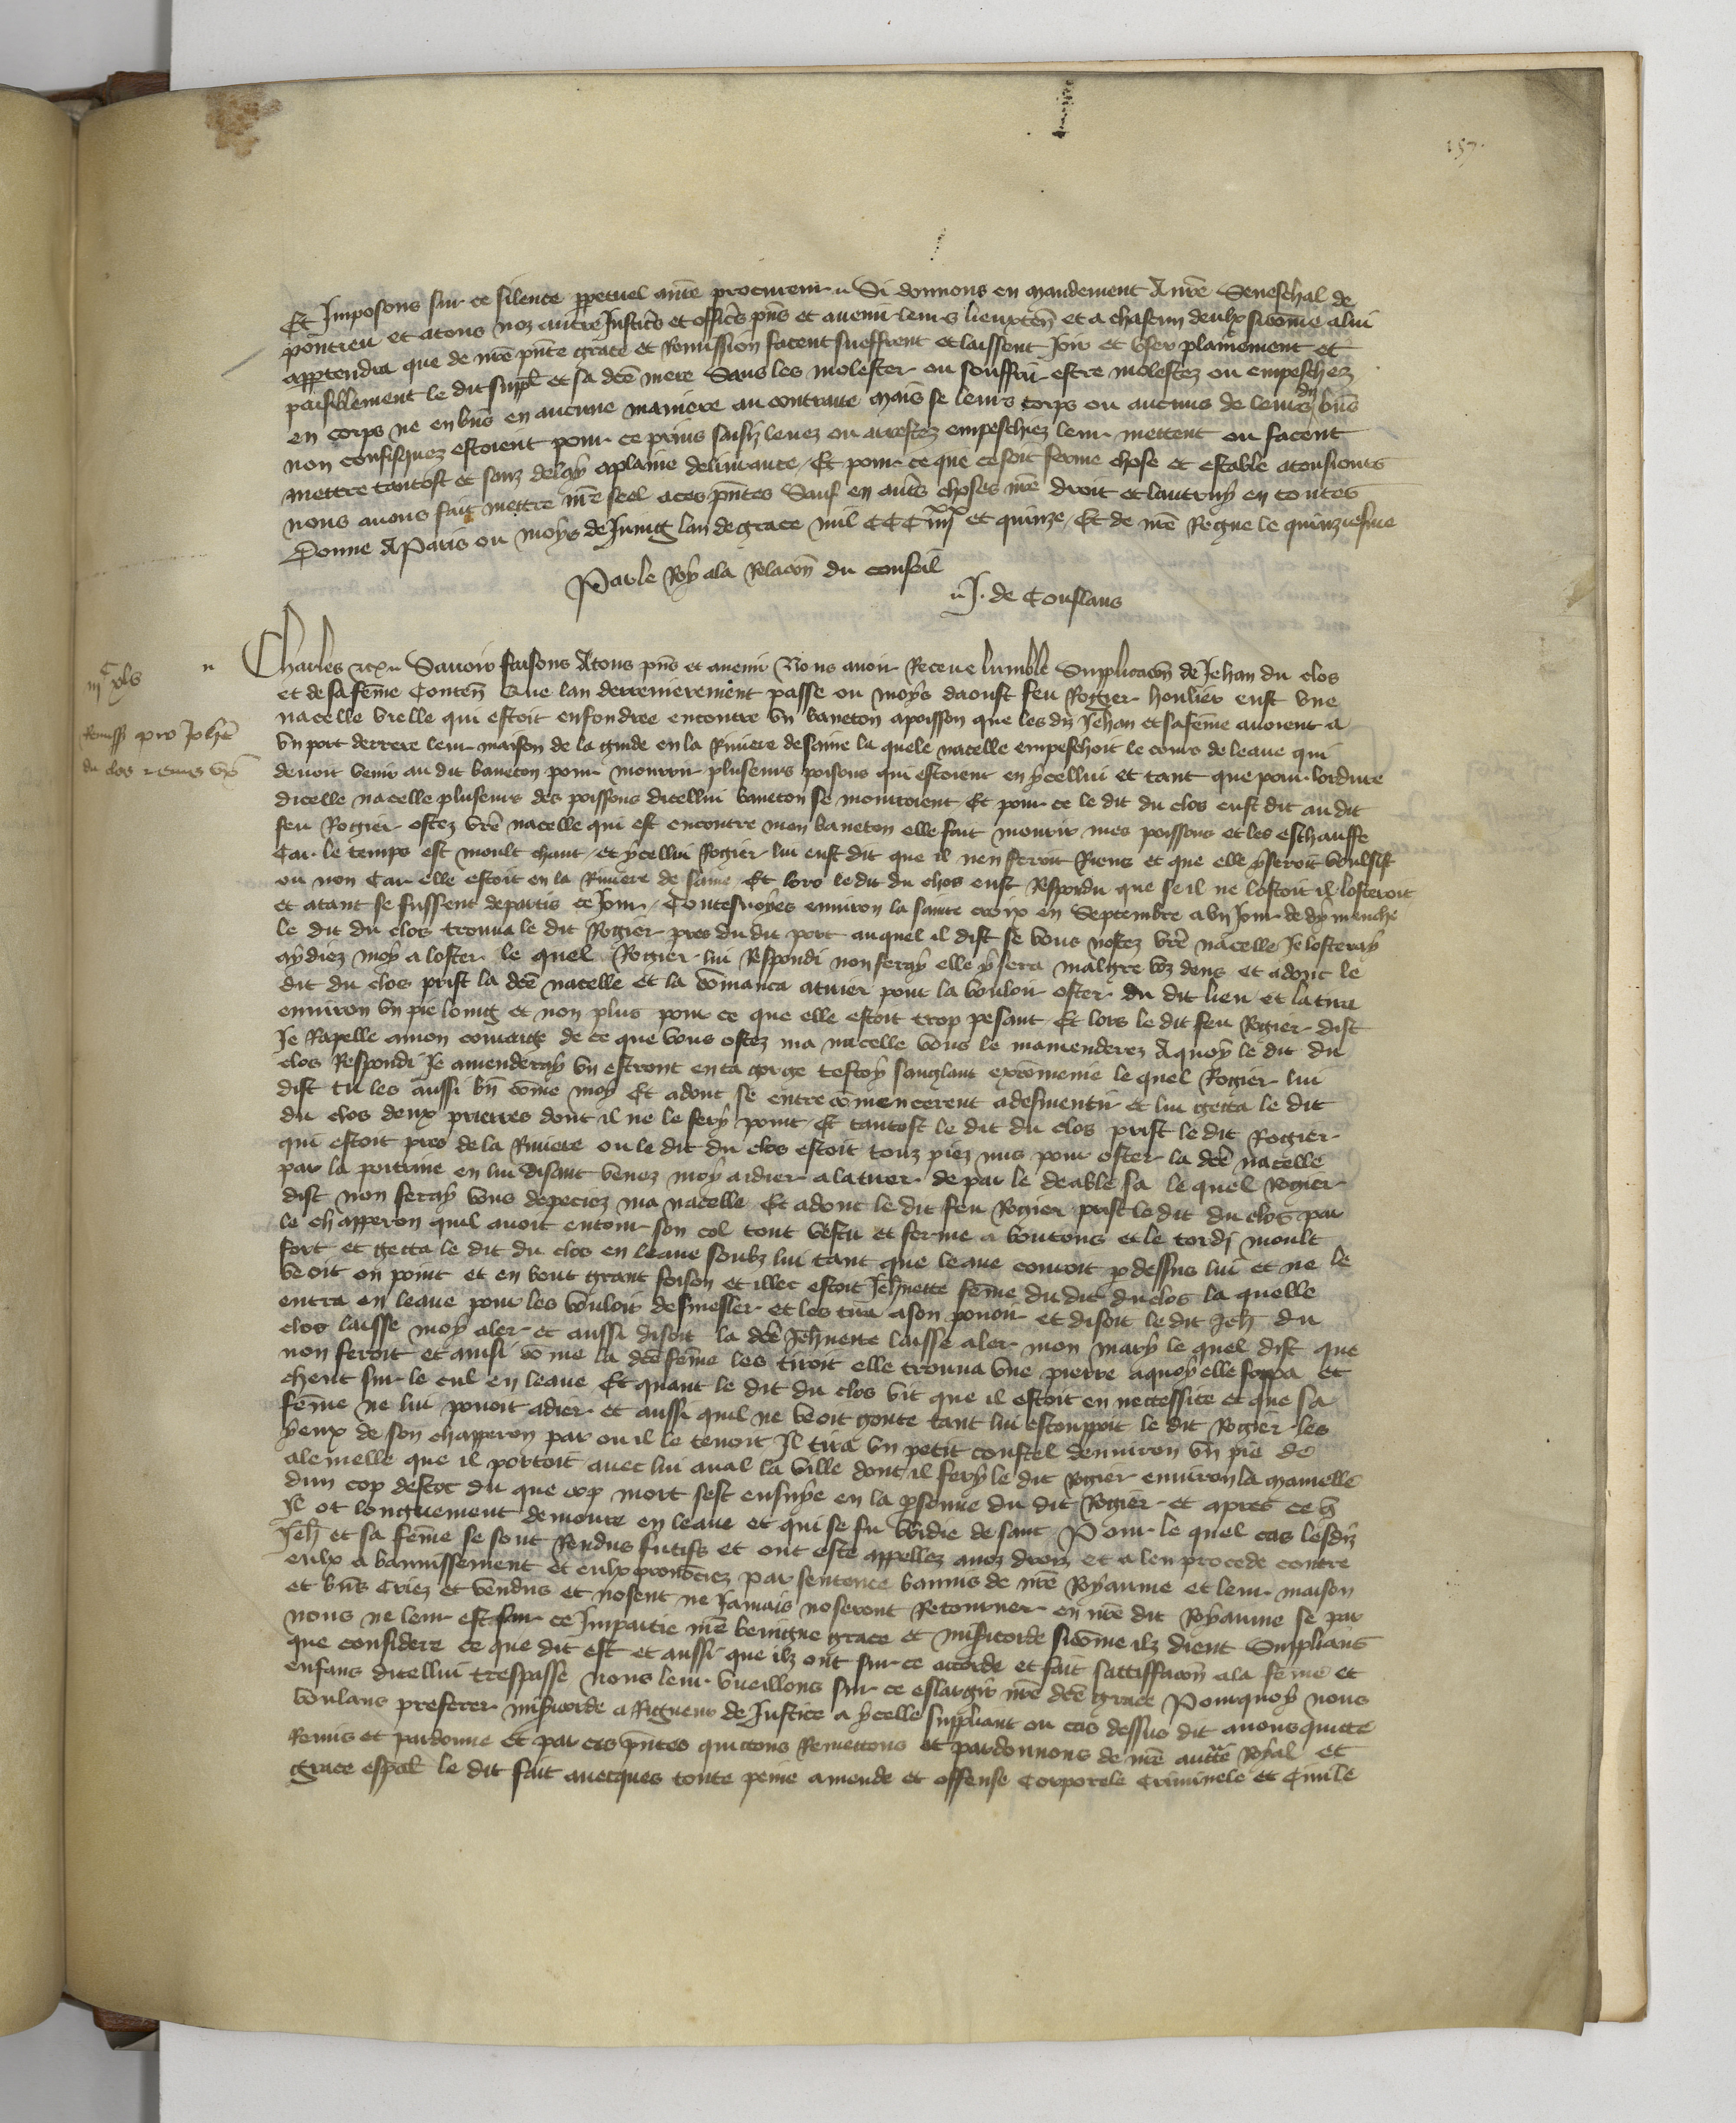 157.
Et Imposons sur ce silence ppetuel a nre procureur. Si donnons en mandement A nre Seneschal de
pontieu et atous noz autres Justiciers et officiers pñs et avenir leurs lieuxten et a chascun deulx sicome alui
apptendra que de nre pñte grace et Remission facent sueffrent et laissent Joir et user plainement et
paisiblement le dit suppl et sa dce mere Sans les molester ou souffrir estre molestez ou empeschez
en corps ne en bñs en aucune maniere au contraire Mais se leurs corps ou aucuns de leurs diz bñs
non confisquez estoient pour ce prins saisiz levez ou arrestez empeschiez leur mettent ou facent
mettre tantost et sanz delay aplaine delivrance, Et pour ce que ce soit ferme chose et estable atousiours
nous avons fait mettre nre seel aces pñtes Sauf en autres choses nre droit et lautruy en toutes
Donne A Paris ou moys de Juing lan de grace mil CCC iiii xx et quinze, Et de nre Regne le quinziesme
Par le Roy ala Relacion du conseil
J. de Conflans
iii c xls
Remissi pro Johe
du clos et eius ux
Charles etc. Savoir faisons Atous pñs et avenir Nous avoir Receue lumble Supplicacion de Jehan du clos
et de sa feme Conten Que lan derrenierement passe ou moys daoust feu Rogier houlier eust une
nacelle vielle qui estoit enfondree encontre un baneton apoisson que les diz Jehan et sa feme avoient a
un port derrere leur maison de la guide en la Riviere de saine la quele nacelle empeschoit le cours de leaue qui
devoit venir au dit baneton pour nourrir pluseurs poisons qui estoient en ycellui et tant que pour lordure
dicelle nacelle pluseurs des poissons dicellui baneton se mouroient Et pour ce le dit du clos eust dit au dit
feu Rogier ostez vre nacelle qui est encontre mon baneton elle fait mourir mes poissons et les eschauffe
Car le temps est moult chaut, et ycellui Rogier lui eust dit que il nen feroit Riens et que elle y seroit voulsist
ou non Car elle estoit en la Riviere de saine Et lors le dit du clos eust Respondu que se il ne lostoit il losteroit
et atant se fussent departis ce Jour, Toutesvoyes environ la sainte croix en Septembre a un Jour de dymenche
le dit du clos trouva le dit Rogier pres du dit port auquel il dist se vous nostez vre nacelle Je losteray
aydiez moy a loster le quel Rogier lui Respondi non feray elle y sera malgre voz dens et adonc le
dit du clos prist la dce nacelle et la comanca atirer pour la vouloir oster du dit lieu et la tira
environ un pie loing et non plus pour ce que elle estoit trop pesant Et lors le dit feu Rogier dist
Je Rapelle a mon de ce que vous ostez ma nacelle vous le mamenderez Aquoy le dit du
clos Respondi Je amenderay un estront en ta gorge testoy sanglant excomenie le quel Rogier lui
dist tu les aussi bn come moy Et adont se entrecomencerent adesmentir et lui getta le dit
du clos deux pierres dont il ne le fery point Et tantost le dit du clos prist le dit Rogier
qui estoit pres de la Riviere ou le dit du clos estoit touz piez nus pour oster la dce nacelle
par la poitrine en lui disant venez moy aidier alatirer de par le deable sa le quel Rogier
dist non feray vous depeciez ma nacelle Et adont le dit feu Rogier prist le dit du clos par
le chapperon quil avoit entour son col tout vestu et ferme a boutons et le tordi moult
fort et getta le dit du clos en leaue soubz lui tant que leaue couroit p dessus lui et ne le
veoit on point et en bout grant foison et illec estoit Jehnette feme du dit du clos la quelle
entra en leaue pour les vouloir desmesler et les tira a son povoir et disoit le dit Jeh du
clos laisse moy aler et aussi disoit la dce Jehnette laisse aler mon mary le quel dist que
non feroit et ainsi come la dce feme les tiroit elle trouva une pierre aquoy elle soppa et
cheut sur le cul en leaue Et quant le dit du clos vit que il estoit en neccessite et que sa
feme ne lui povoit adier et aussi quil ne veoit goute tant lui estouppoit le dit Rogier les
yeux de son chapperon par ou il le tenoit Il tira un petit coustel denviron un pie de
alemelle que il portoit avec lui aval la ville dont il fery le dit Rogier environ la mamelle
dun cop destoc du que cop mort sest ensuye en la psonne du dit Rogier et apres ce q
Il ot longuement demoure en leaue et qui se fu widie de sanc Pour le quel cas lesdiz
Jeh et sa feme se sont Rendus futifs et ont este appellez a noz droiz et a len procede contre
eulx a bannissement et eulx prononciez par sentence bannis de nre Royaume et leur maison
et bñs criez et vendus et nosent ne Jamais noseront Retourner en nre dit Royaume se par
nous ne leur est sur ce Impartie nre benigne grace et misericorde sicome ilz dient Suppliants
que considere ce que dit est et aussi que ilz ont sur ce accorde et fait sattisfacion ala feme et
enfans dicellui trespasse nous leur vueillons sur ce eslargir nre dce grace Pourquoy nous
voulans preferer misericorde a Rigueur de Justice a ycelle suppliant ou cas dessus dit avons quicte
Remis et pardonne et par ces pñtes quictons Remettons et pardonnons de nre aucte Royal et
grace espal le dit fait avecques toute peine amende et offense Corporele Criminele et Civile